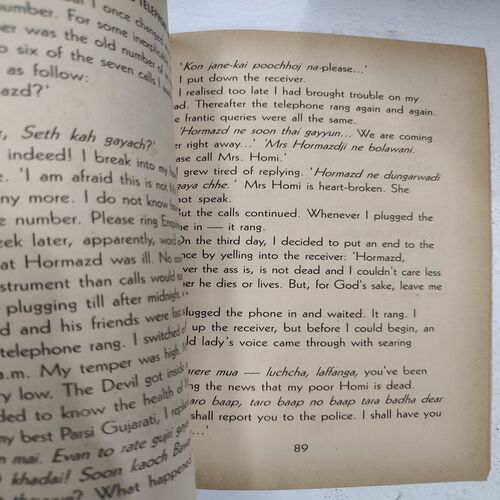 I once changed
For some inexplicable
er was the old number of
o six of the seven calls I
as follow:
mazd?'
r, Seth kah gayach?'
indeed! I break into my
e. 'I am afraid this is not
ny more. I do not know
e number. Please ring
eek later, apparently, word
at Hormazd was ill. No
nstrument than calls would
plugging till after midnight,
d and his friends were fast
telephone rang. I switched
a.m. My temper was high,
ry low. The Devil got inside
ded to know the health of
my best Parsi Gujarati, I
n mai. Evan to rate gujri
O khadai! Soon kaoch
? What happened
'Kon jane-kai poochhoj na-please...'
I put down the receiver.
I realised too late I had brought trouble on my
ad. Thereafter the telephone rang again and again.
e frantic queries were all the same.
'Hormazd ne soon thai gayyun... We are coming
er right away...' 'Mrs Hormazdji ne bolawani.
ase call Mrs. Homi.'
grew tired of replying. 'Hormazd ne dungarwadi
gaya chhe.' Mrs Homi is heart-broken. She
not speak.
But the calls continued. Whenever I plugged the
ne in — it rang.
On the third day, I decided to put an end to the
nce by yelling into the receiver: 'Hormazd,
ver the ass is, is not dead and I couldn't care less
er he dies or lives. But, for God's sake, leave me
plugged the phone in and waited. It rang. I
up the receiver, but before I could begin, an
ld lady's voice came through with searing
arere mua — luchcha, laffanga, you've been
ing the news that my poor Homi is dead.
taro baap, taro baap no baap tara badha dear
shall report you to the police. I shall have you
...'
89